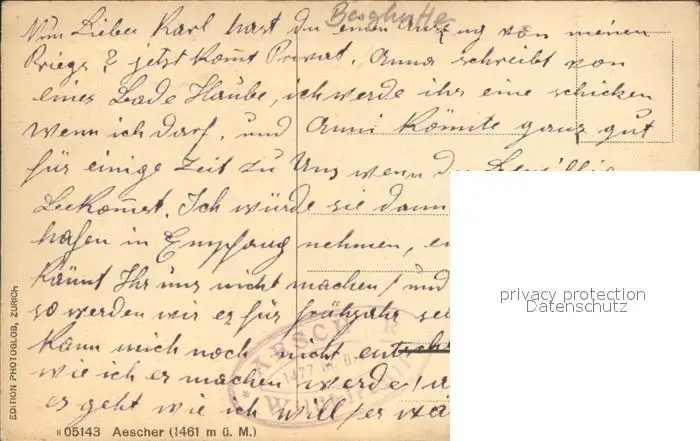 Berghütte
Nun Lieber Karl hast du einen Auszug von meinen
Kriegs ? jetzt Kom̄t Privat. Anna schreibt von
einer Bade Haube, ich werde ihr eine schicken
wenn ich darf. und Anni könnte ganz gut
für einige Zeit zu Uns wenn du
Bekom̄st. Ich würde sie dann
hafen in Empfang nehmen,
Könnt Ihr uns nicht machen! und
so werden wir es für frühjahr
Kann mich noch nicht entsch
wie ich es machen werde!
es geht wie ich will/
AESCHER
1477 m ü.
privacy protection
Datenschutz
EDITION PHOTOGLOB, ZÜRICH
R 05143 Aescher (1461 m ü. M.)